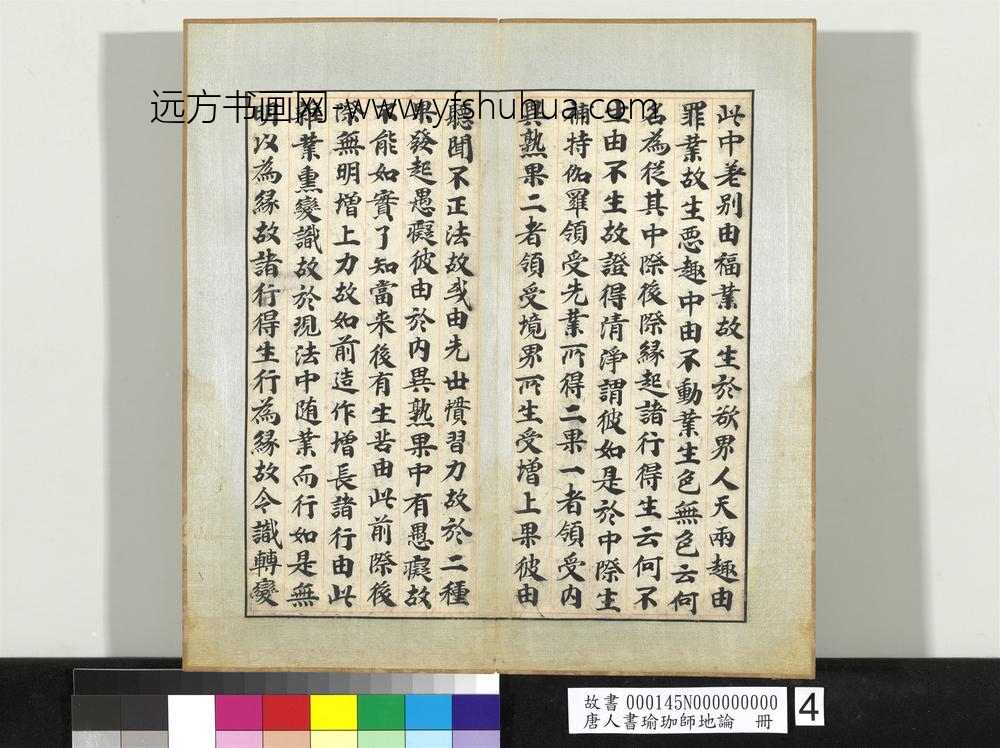 远方书画网-www.yfshuhua.com
此中差别由福業故生於欲界人天兩趣由
罪業故生悪趣中由不動業生色無色云何
名為從其中際後際緣起諸行得生云何不
生由不生故證得清淨謂彼如是於中際生
補特伽羅領受先業所得二果一者領受內
異熟果二者領受境界所生受增上果彼由
聽聞不正法故或由先世慣習力故於二種
果發起愚癡彼由於內異熟果中有愚癡故
不能如實了知當来後有生苦由此前際後
際無明增上力故如前造作增長諸行由此
新業熏變識故於現法中随業而行如是無
明以為緣故諸行得生行為緣故令識轉變
故書 000145N000000000
唐人書瑜珈師地論 冊
4